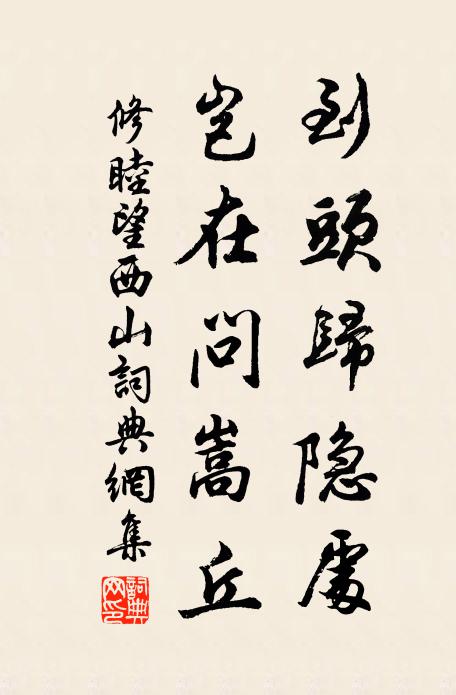 到頭歸隐處
岂在問嵩丘
修睦望西山詞典網集
詞典網印